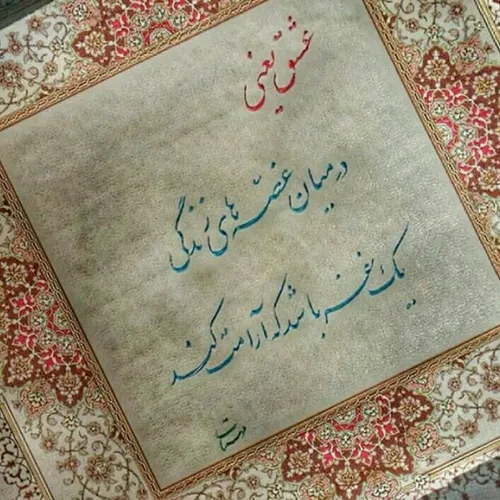 عشق یعنی
در میان غصّه های زندگی
یک نفر باشد که آرامت کند